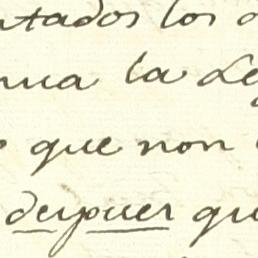 ntados los
la Le
que non
depues qu